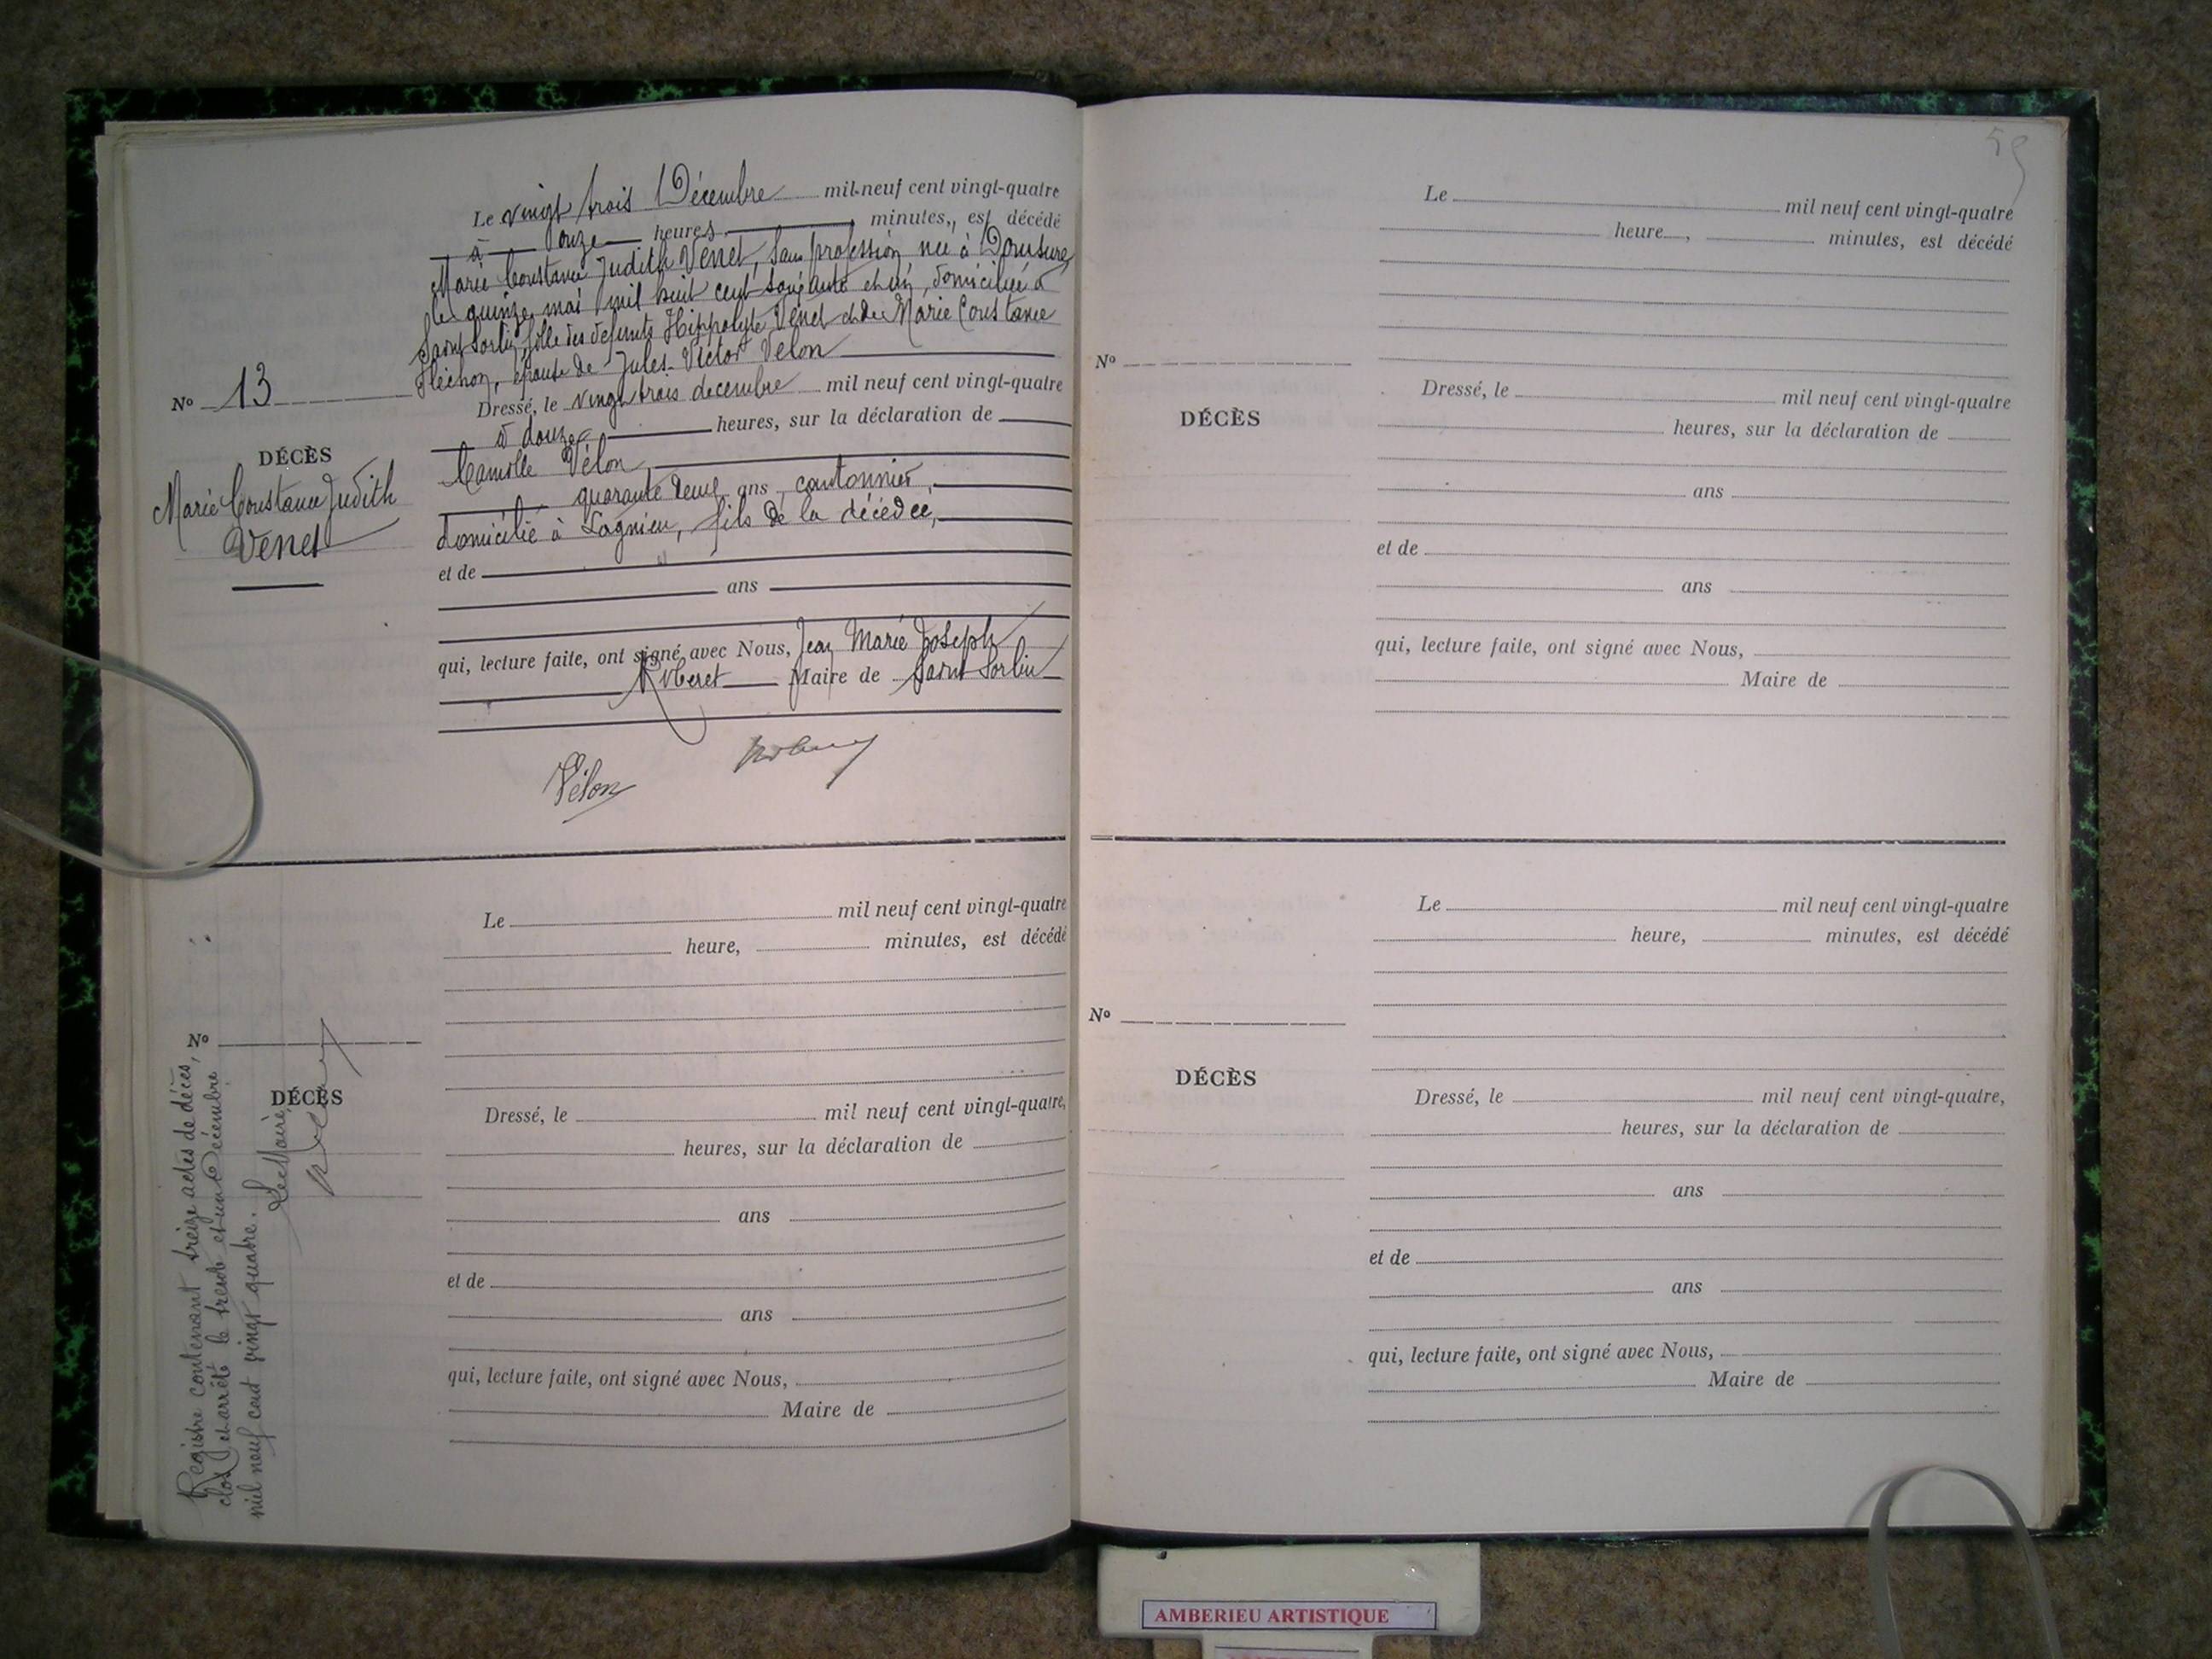 Le vingt trois Décembre mil neuf cent vingt-quatre
à onze heures minutes, est décédé
Marie Constance Judith Venet, sans profession née à Domsure
le quinze mai mil huit cent soixante et un, domiciliée à
Saint Sorlin fille des défunts Hippolyte Venet et de Marie Constance
épouse de Jules Victor Vélon
Nº 13
Dressé, le vingt trois décembre mil neuf cent vingt-quatre
à douze heures, sur la déclaration de
DÉCÈS
Marie Constance Judith
Venet
Camille Vélon,
quarante deux ans, cantonnier,
domicilié à Lagnieu, fils de la décédée,
et de
ans
qui, lecture faite, ont signé avec Nous, Jean Marie Joseph
Maire de Saint Sorlin
Vélon
Le mil neuf cent vingt-quatre
heure, minutes, est décédé
Nº
DÉCÈS
Dressé, le mil neuf cent vingt-quatre,
heures, sur la déclaration de
ans
et de
ans
qui, lecture faite, ont signé avec Nous,
Maire de
Registre contenant treize actes de décès,
clos et arrêté le trente et un Décembre
mil neuf cent vingt quatre.
Le Maire,
59
Le mil neuf cent vingt-quatre
heure, minutes, est décédé
Nº
DÉCÈS
Dressé, le mil neuf cent vingt-quatre
heures, sur la déclaration de
ans
et de
ans
qui, lecture faite, ont signé avec Nous,
Maire de
Le mil neuf cent vingt-quatre
heure, minutes, est décédé
Nº
DÉCÈS
Dressé, le mil neuf cent vingt-quatre,
heures, sur la déclaration de
ans
et de
ans
qui, lecture faite, ont signé avec Nous,
Maire de
AMBERIEU ARTISTIQUE